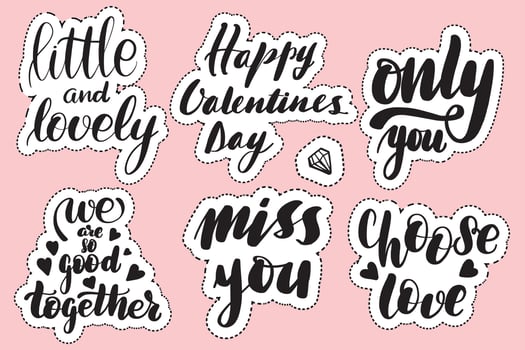 little
and
lovely
Happy
Valentines
Day
only
you
(we)
are
so
good
together
miss
you
choose
love